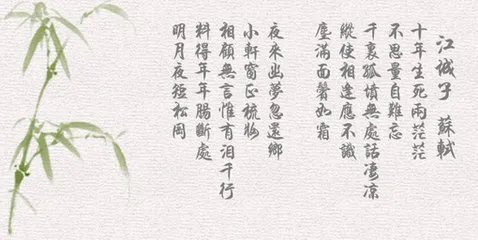 江城子 蘇軾
十年生死兩茫茫
不思量自難忘
千裏孤墳無處話凄凉
縱使相逢應不識
塵滿面鬢如霜
夜來幽夢忽還鄉
小軒窗正梳妝
相顧無言惟有泪千行
料得年年腸斷處
明月夜短松岡